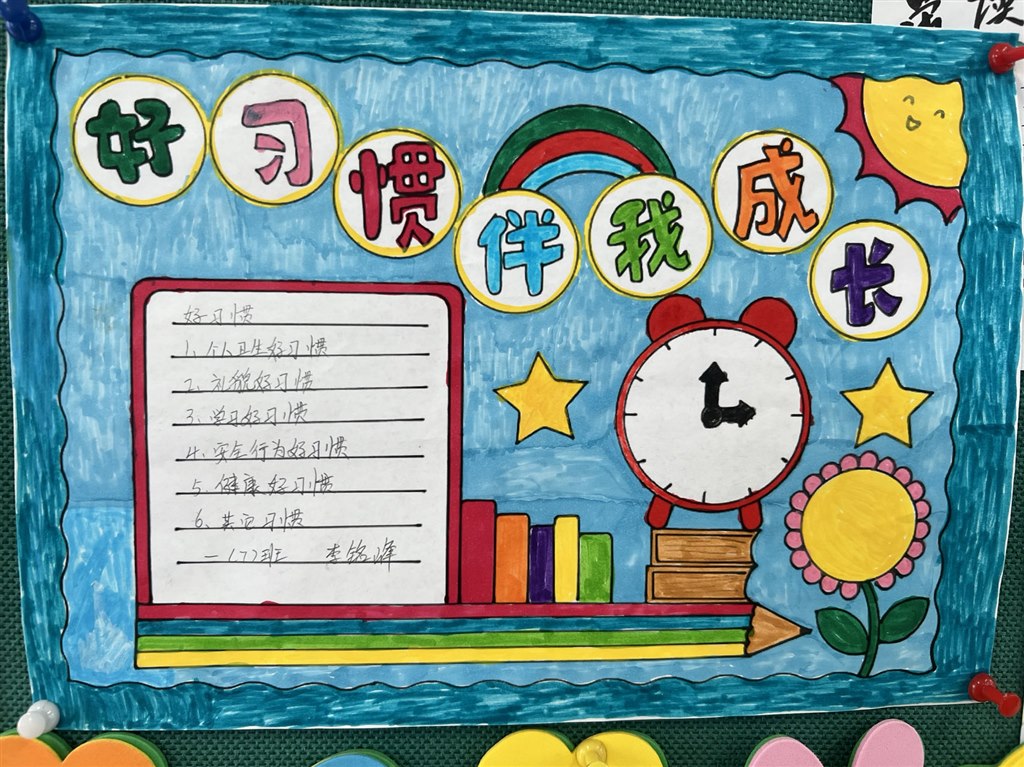 好习惯伴我成长
好习惯
1、个人卫生好习惯
2、礼貌好习惯
3、学习好习惯
4、安全行为好习惯
5、健康好习惯
6、其它习惯
一(7)班 李铭峰